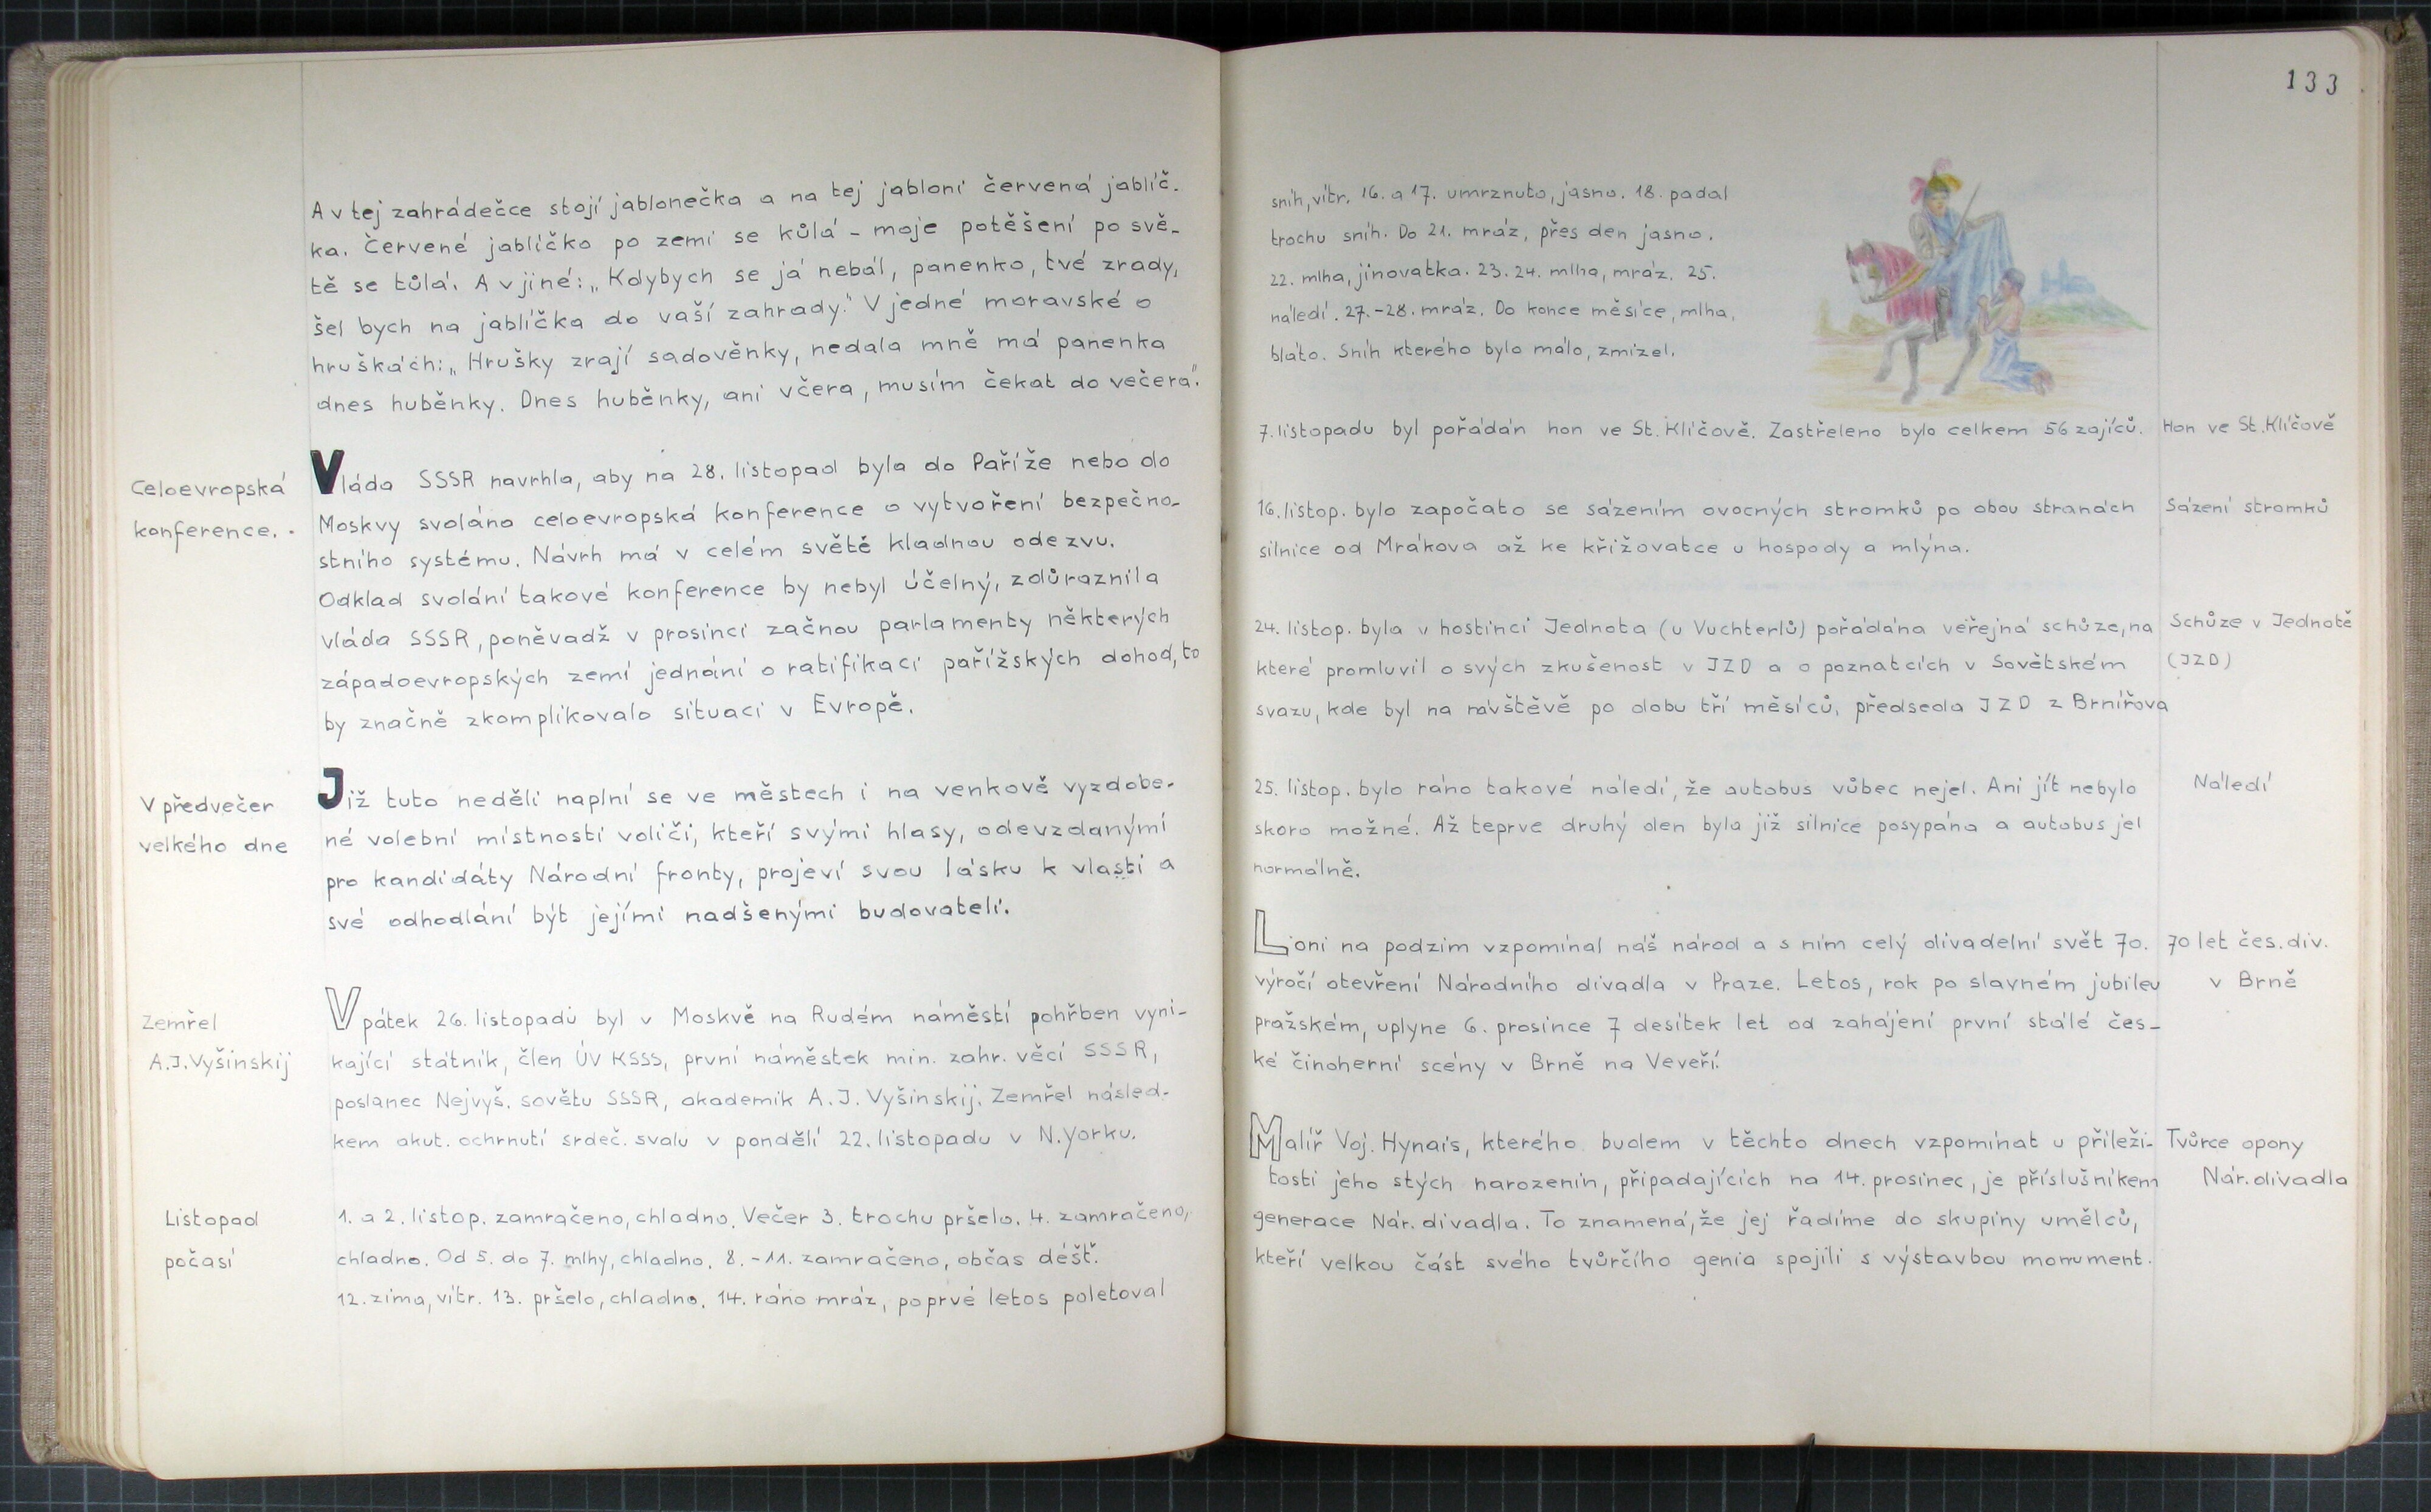 A v tej zahrádečce stojí jablonečka a na tej jabloni červená jablíč-
ka. Červené jablíčko po zemi se kůlá - moje potěšení po svě-
tě se tůlá. A v jiné: „Kdybych se já nebál, panenko, tvé zrady,
šel bych na jablíčka do vaší zahrady." V jedné moravské o
hruškách: „Hrušky zrají sadověnky, nedala mně má panenka
dnes huběnky. Dnes huběnky, ani včera, musím čekat do večera".
Celoevropská
konference.
Vláda SSSR navrhla, aby na 28. listopad byla do Paříže nebo do
Moskvy svolána celoevropská konference o vytvoření bezpečno-
stního systému. Návrh má v celém světě kladnou odezvu.
Odklad svolání takové konference by nebyl účelný, zdůraznila
vláda SSSR, poněvadž v prosinci začnou parlamenty některých
západoevropských zemí jednání o ratifikaci pařížských dohod, to
by značně zkomplikovalo situaci v Evropě.
V předvečer
velkého dne
Již tuto neděli naplní se ve městech i na venkově vyzdobe-
né volební místnosti voliči, kteří svými hlasy, odevzdanými
pro kandidáty Národní fronty, projeví svou lásku k vlasti a
své odhodlání být jejími nadšenými budovateli.
Zemřel
A.J. Vyšinskij
V pátek 26. listopadu byl v Moskvě na Rudém náměstí pohřben vyni-
kající státník, člen ÚV KSSS, první náměstek min. zahr. věcí SSSR,
poslanec Nejvyš. sovětu SSSR, akademik A.J. Vyšinskij. Zemřel násled-
kem akut. ochrnutí srdeč. svalu v pondělí 22. listopadu v N.Yorku.
Listopad
počasí
1. a 2. listop. zamračeno, chladno. Večer 3. trochu pršelo. 4. zamračeno,
chladno. Od 5. do 7. mlhy, chladno. 8. - 11. zamračeno, občas déšť.
12. zima, vítr. 13. pršelo, chladno. 14. ráno mráz, poprvé letos poletoval
133
sníh, vítr. 16. a 17. umrznuto, jasno. 18. padal
trochu sníh. Do 21. mráz, přes den jasno.
22. mlha, jinovatka. 23. 24. mlha, mráz. 25.
náledí. 27.-28. mráz. Do konce měsíce, mlha,
bláto. Sníh kterého bylo málo, zmizel.
7. listopadu byl pořádán hon ve St. Klíčově. Zastřeleno bylo celkem 56 zajíců.
Hon ve St. Klíčově
16. listop. bylo započato se sázením ovocných stromků po obou stranách
silnice od Mrákova až ke křižovatce u hospody a mlýna.
Sázení stromků
24. listop. byla v hostinci Jednota (u Vuchterlů) pořádána veřejná schůze, na
které promluvil o svých zkušenost v JZD a o poznatcích v Sovětském
svazu, kde byl na návštěvě po dobu tří měsíců, předseda JZD z Brnířova
Schůze v Jednotě
(JZD)
25. listop. bylo ráno takové náledí, že autobus vůbec nejel. Ani jít nebylo
skoro možné. Až teprve druhý den byla již silnice posypána a autobus jel
normálně.
Náledí
Loni na podzim vzpomínal náš národ a s ním celý divadelní svět 70.
výročí otevření Národního divadla v Praze. Letos, rok po slavném jubileu
pražském, uplyne 6. prosince 7 desítek let od zahájení první stálé čes-
ké činoherní scény v Brně na Veveří.
70 let čes. div.
v Brně
Malíř Voj. Hynais, kterého budem v těchto dnech vzpomínat u příleži-
tosti jeho stých narozenin, připadajících na 14. prosinec, je příslušníkem
generace Nár. divadla. To znamená, že jej řadíme do skupiny umělců,
kteří velkou část svého tvůrčího genia spojili s výstavbou monument.
Tvůrce opony
Nár. divadla